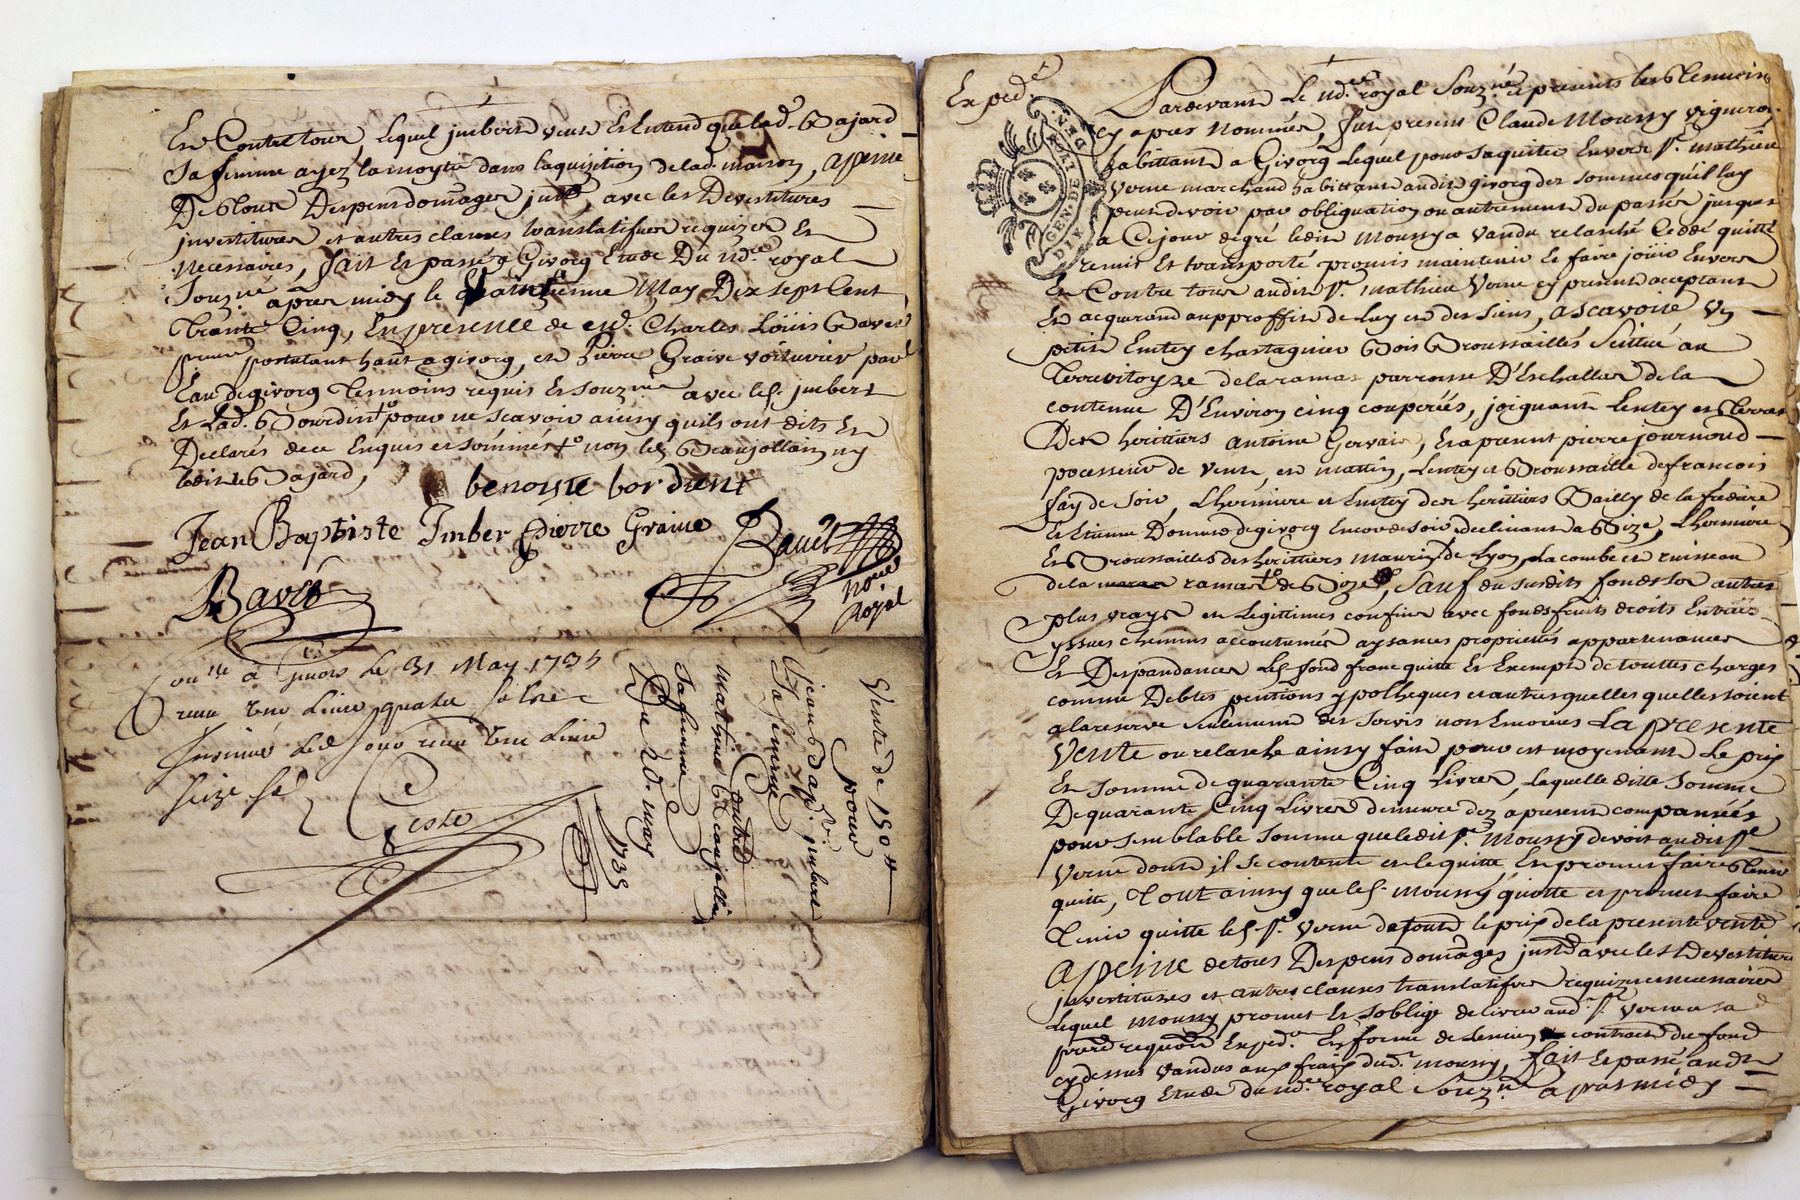 En Contretour, lequel jmbert veut Et Entend que lad. Bajard
sa femme ayez la moytié dans laquizition de lad. maison, a peine
De tous Despens domages jnts, avec les Devestitures
jnvestitures et autres clauses translatifves requizes Et
Necessaires, fait Et passé a Givorq Etude Du nd.re royal
Souz.né apres midy le May Dix sept Cent
Trante Cinq, En presence de Charles Loüis Bavet
postulant hant a givorq, et Pierre Graive voiturier par
Eau de givorq Temoins requis Et souz.nés avec led. jmbert
Et lad. Bourdin pour ne scavoir ainsy quils ont dits Et
Declarés de ce Enquis et sommés non led. Beaujollain ny
lad. Bajard,
benoiste bordient
Jean Baptiste Imber Pierre Graive Bavet
Bavet no.re Royal
Con.llé à givors le 31 May 1735
receu une Livre quatre sols
Insinué led. jour receu une Livre
seize s.
Ceste
Vente de 150 tt
pour
jean bap.te jmbert
& sa femme
contre
mathieu beaujollin
sa femme
De 20.e may
1735
Exped.é
GEN. DE LYON
Pardevant Le nd.re royal Souz.né et presents les temoins
cy apres nommés, fut present Claude Moussy vigneron
habittant a Givorq lequel pour saquiter Envers s.r mathieu
Verne marchand habittant audit givorq des sommes quil luy
peut devoir par obligation ou autrement du passé jusques
a Ce jour de gré ledit Moussy a vandu relasché Ceddé quitté
remis Et transporté promis maintenir Et faire joüir Envers
Et Contre tous audit s.r mathieu Verne cy present acceptant
Et acquerand au proffit de luy et des siens, ascavoir Un
petit Emtey chastagnier Bois Broussailles scittué au
Terrvitoyre de la ramas parroisse D'Eschallas de la
contenue D'Environ cinq couperées, joignant lentey et terres
Des heritiers antoine Gervais, Et a present pierre journoud
pocesseur de vent, et mattin, lentey et Broussaille de francois
fay de soir, Lhermiere et Emtey des heritiers Bailly de la fredière
Et Etienne Donmo de givorq Encor de soir declinant a Bize, Lhermiere
Et Broussailles des heritiers mauriz de Lyon La combe et ruisseau
de la ramas de Bize, sauf du susdits fonds Les autres
plus vrays et Legittimes confins avec fonds fruits droits Entrées
yssues chemins accoutumés aysances proprietés appartenances
Et Despandances led. fond franc quitte Et Exempt de touttes charges
comme Debtes pentions ypotheques et autres quelles quelles soient
a la reserve seulement des servis non Emoveus La presente
Vente ou relasche ainsy faite pour et moyenant Le prix
Et somme de quarante Cinq Livres, laquelle ditte somme
De quarante Cinq Livres demeure dez a present compansées
pour semblable somme que ledit s.r Moussy devoit audit s.r
Verne dont il se contente et le quitte, Et promet faire tenir
quitte, Tout ainsy que led. moussy quitte et promet faire
Tenir quitte led. s.r Verne de tout le prix de la presente vente
a peine de tous Despens domages jnts avec les Devestitures
jnvestitures et autres clauses translatifves requizes et necessaires
Lequel moussy promet Et soblige de livrer aud. s.r Verne a sa
premiere requon Exped.on En forme de Lemtey contrait du fond
cy dessus vandus aux fraix dud. moussy, fait Et passé aud.
Givorq Etude du nd.re royal Souz.né a pres midy